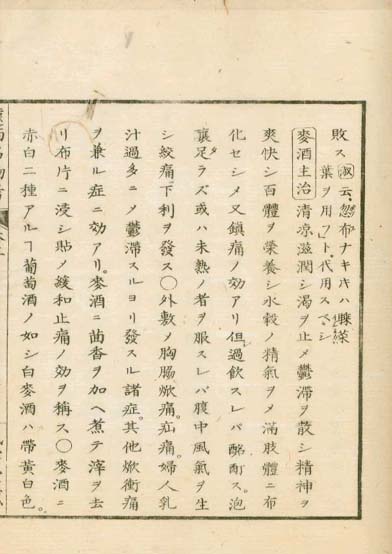 敗ス 云忽布ナキキハ
葉ヲ用フト代用スベシ
麥酒主治 清凉滋潤シ渴ヲ止メ鬱滯ヲ散シ精神ヲ
爽快シ百體ヲ榮養シ水穀ノ精氣ヲメ滿肢體ニ布
化セシメ又鎮痛ノ効アリ但過飲スレバ酩酊ス。泡
釀足ラズ或ハ未熟ノ者ヲ服スレバ腹中風氣ヲ生
シ絞痛下利ヲ發ス〇外敷ノ胸膈焮痛。疝痛。婦人乳
汁過多ニメ鬱滯スルヨリ發スル諸症。其他焮衝痛
ヲ兼ル症ニ効アリ。麥酒ニ茴香ヲ加ヘ煮テ滓ヲ去
リ布片ニ浸シ貼メ緩和止痛ノ効ヲ稱ス〇麥酒ニ
赤白二種アルヿ葡萄酒ノ如シ白麥酒ハ帶黃白色。